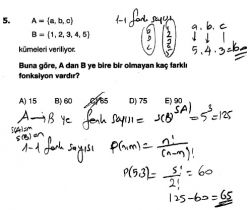 5. A = {a, b, c}
B = {1, 2, 3, 4, 5}
kümeleri veriliyor.
Buna göre, A dan B ye bire bir olmayan kaç farklı
fonksiyon vardır?
A) 15 B) 60 C) 65 D) 75 E) 90
1-1 fonk sayısı
a . b . c
↓ ↓ ↓
5 . 4 . 3 = 60
A → B ye fonk sayısı = s(B)^s(A) = 5^3 = 125
1-1 fonk sayısı P(n,m) = n!/(n-m)!
P(5,3) = 5!/2! = 60
125-60 = 65